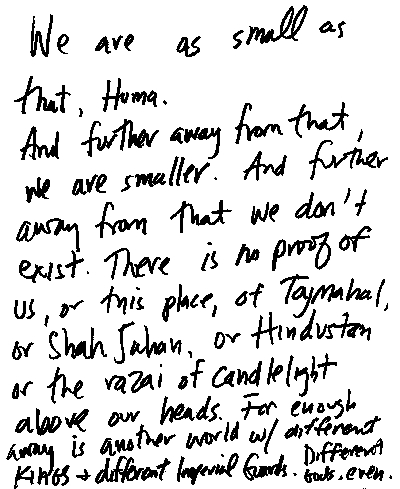 We are as small as
that, Huma.
And further away from that,
we are smaller. And further
away from that we don't
exist. There is no proof of
us, or this place, of Tajmahal,
or Shah Jahan, or Hindustan
or the razai of candlelight
above our heads. Far enough
away is another world w/ different
Kings + different Imperial Guards. Different
Gods, even.